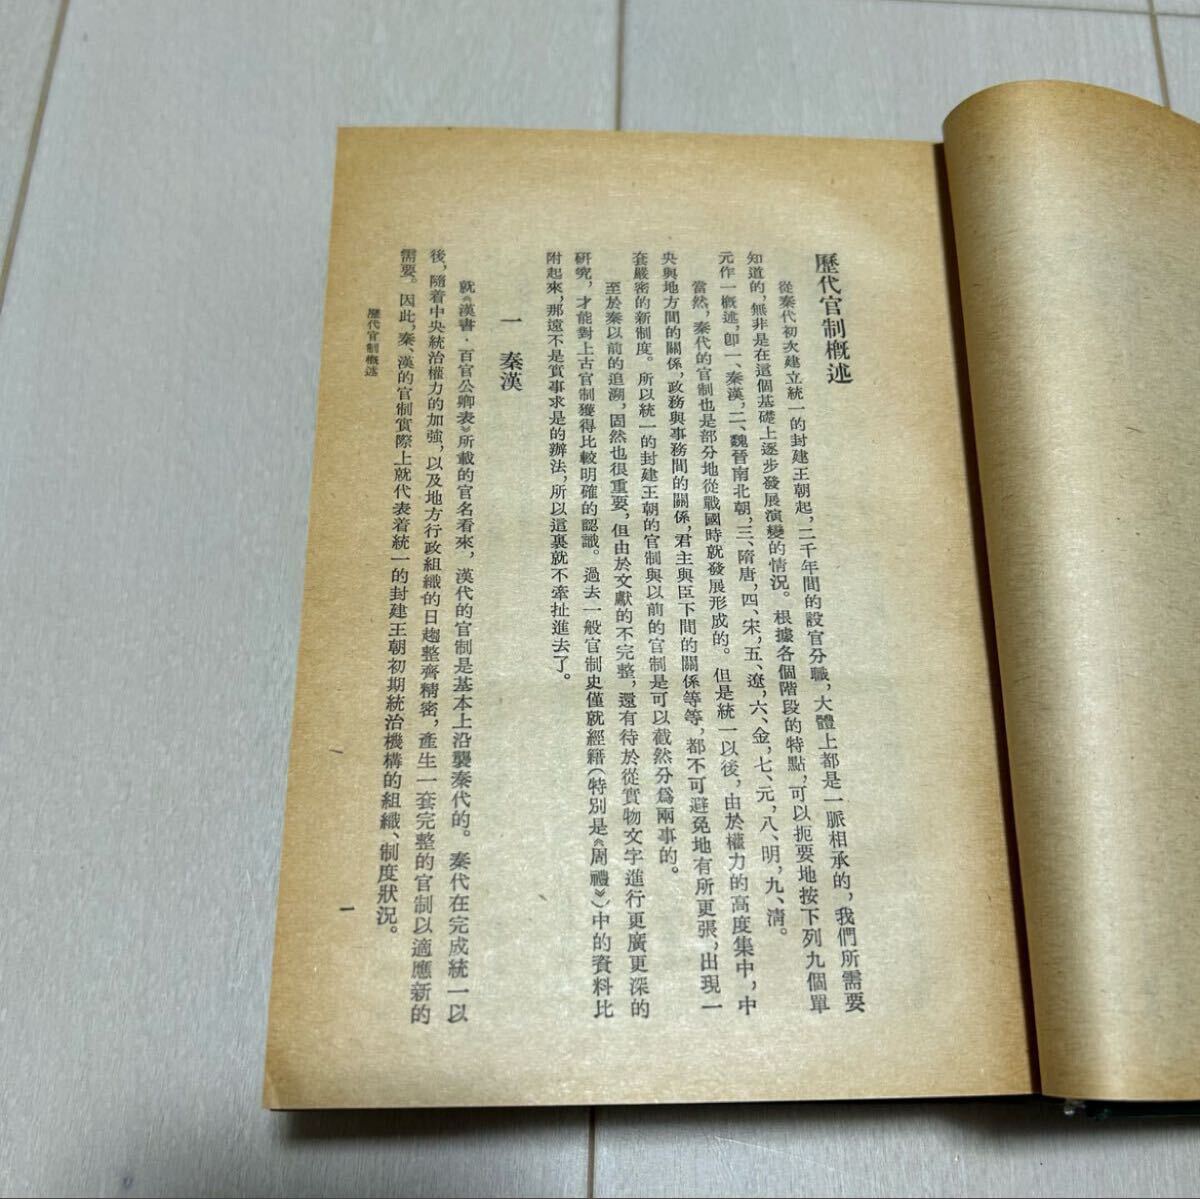 歷代官制概述
從秦代初次建立統一的封建王朝起，二千年間的設官分職，大體上都是一脈相承的，我們所需要
知道的，無非是在這個基礎上逐步發展演變的情況。根據各個階段的特點，可以扼要地按下列九個單
元作一概述，卽一、秦漢，二、魏晉南北朝，三、隋唐，四、宋，五、遼，六、金，七、元，八、明，九、清。
當然，秦代的官制也是部分地從戰國時就發展形成的。但是統一以後，由於權力的高度集中，中
央與地方間的關係，政務與事務間的關係，君主與臣下間的關係等等，都不可避免地有所更張，出現一
套嚴密的新制度。所以統一的封建王朝的官制與以前的官制是可以截然分爲兩事的。
至於秦以前的追溯，固然也很重要，但由於文獻的不完整，還有待於從實物文字進行更廣更深的
研究，才能對上古官制獲得比較明確的認識。過去一般官制史僅就經籍（特別是《周禮》）中的資料比
附起來，那遠不是實事求是的辦法，所以這裏就不牽扯進去了。
一　秦漢
就《漢書·百官公卿表》所載的官名看來，漢代的官制是基本上沿襲秦代的。秦代在完成統一以
後，隨着中央統治權力的加強，以及地方行政組織的日趨整齊精密，產生一套完整的官制以適應新的
需要。因此，秦、漢的官制實際上就代表着統一的封建王朝初期統治機構的組織、制度狀況。
歷代官制概述
一